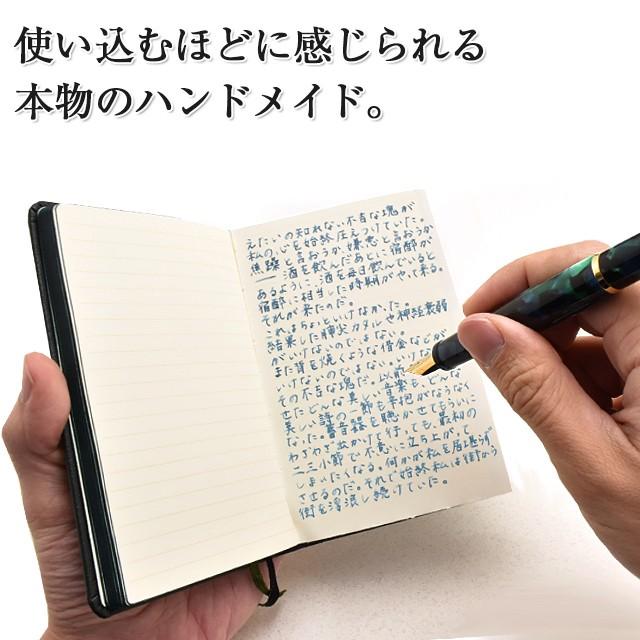 使い込むほどに感じられる
本物のハンドメイド。
えたいの知れない不吉な塊が
私の心を始終圧えつけていた。
焦躁と言おうか、嫌悪と言おうか
――酒を飲んだあとに宿酔が
あるように、酒を毎日飲んでいると
宿酔に相当した時期がやって来る。
それが来たのだ。
これはちょっといけなかった。
結果した肺尖カタルや神経衰弱
がいけないのではない。
また背を焼くような借金などが
いけないのではない。いけな
その不吉な塊だ。以前
せたどんな美しい音楽も、どんな
美しい詩の一節も辛抱がならなく
なった。蓄音器を聴かせてもらいに
わざわざ出かけて行っても、最初の
二三小節で不意に立ち上がって
しまいたくなる。何かが私を居堪らず
させるのだ。それで始終私は街から
街を浮浪し続けていた。